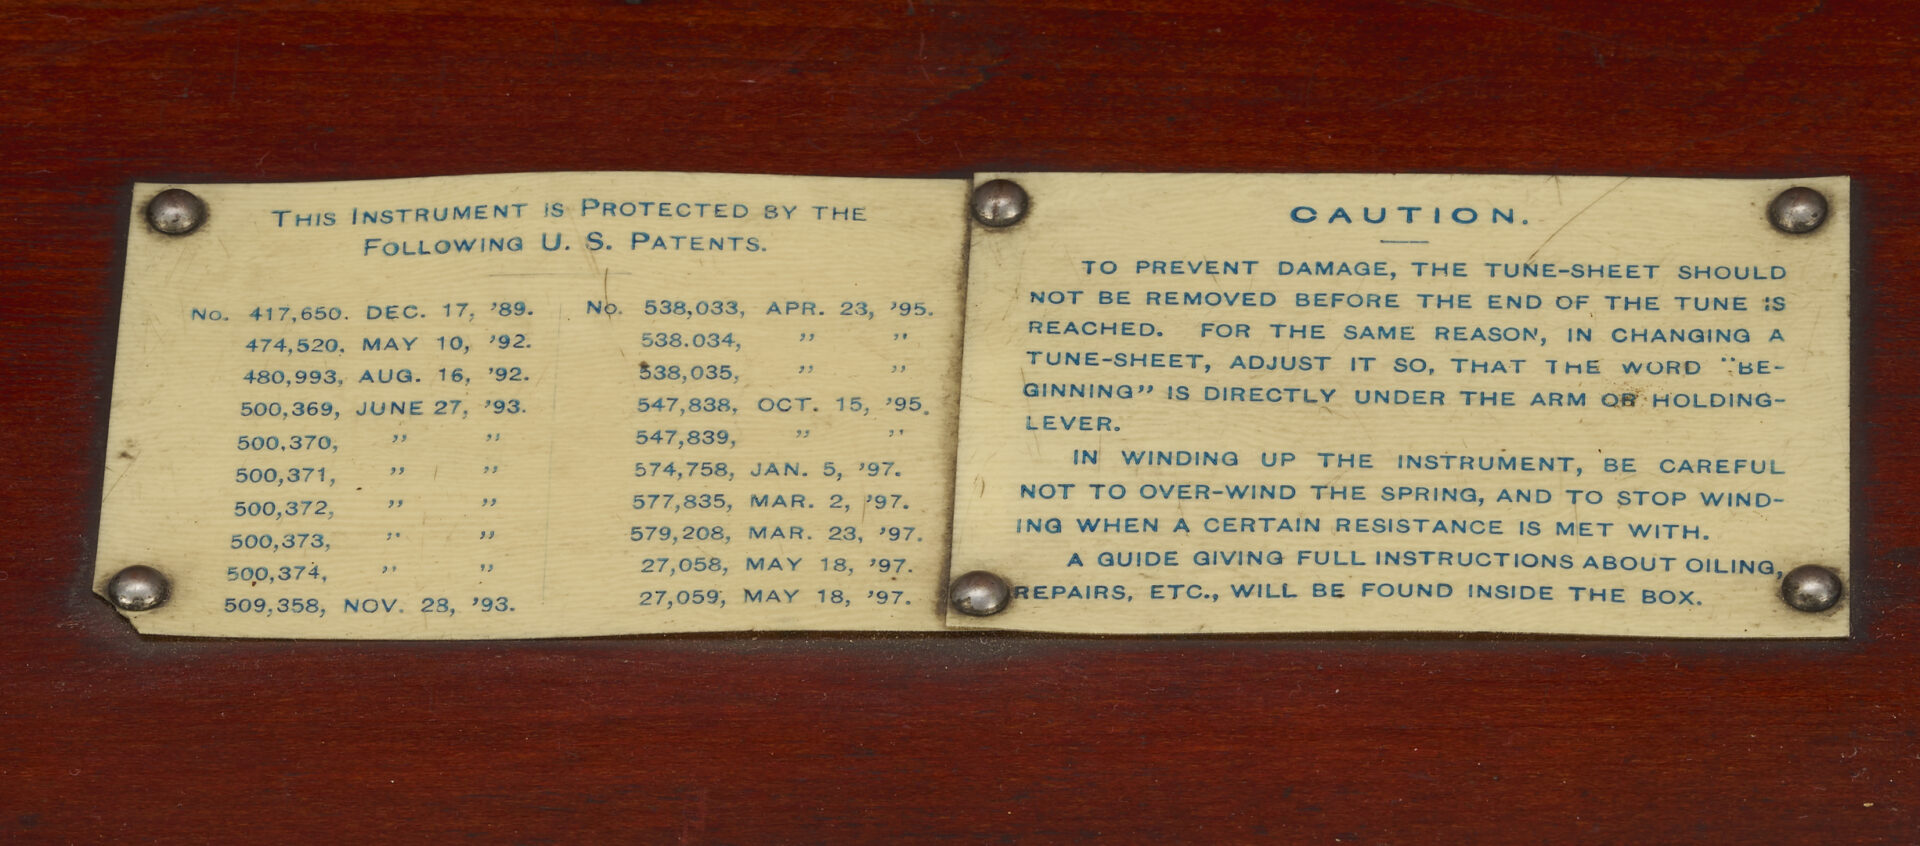 THIS INSTRUMENT IS PROTECTED BY THE
FOLLOWING U. S. PATENTS.
No. 417,650. DEC. 17, '89.
474,520. MAY 10, '92.
480,993, AUG. 16, '92.
500,369, JUNE 27, '93.
500,370, " "
500,371, " "
500,372, " "
500,373, " "
500,374, " "
509,358, NOV. 28, '93.
No. 538,033, APR. 23, '95.
538.034, " "
538,035, " "
547,838, OCT. 15, '95.
547,839, " "
574,758, JAN. 5, '97.
577,835, MAR. 2, '97.
579,208, MAR. 23, '97.
27,058, MAY 18, '97.
27,059, MAY 18, '97.
CAUTION.
TO PREVENT DAMAGE, THE TUNE-SHEET SHOULD
NOT BE REMOVED BEFORE THE END OF THE TUNE IS
REACHED. FOR THE SAME REASON, IN CHANGING A
TUNE-SHEET, ADJUST IT SO, THAT THE WORD "BE-
GINNING" IS DIRECTLY UNDER THE ARM OR HOLDING-
LEVER.
IN WINDING UP THE INSTRUMENT, BE CAREFUL
NOT TO OVER-WIND THE SPRING, AND TO STOP WIND-
ING WHEN A CERTAIN RESISTANCE IS MET WITH.
A GUIDE GIVING FULL INSTRUCTIONS ABOUT OILING,
REPAIRS, ETC., WILL BE FOUND INSIDE THE BOX.